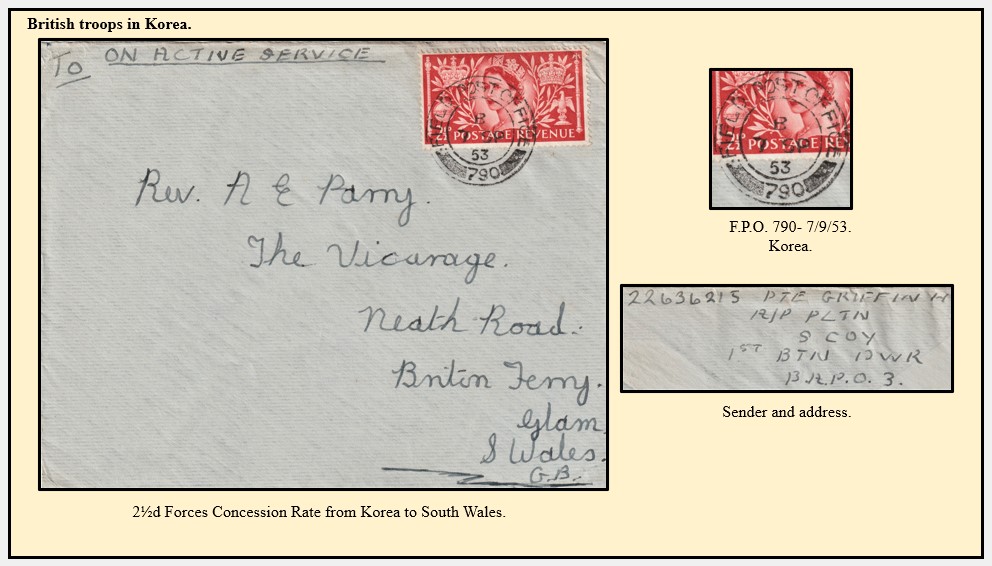 British troops in Korea.
To ON ACTIVE SERVICE
FIELD POST OFFICE
B
7 SP
53
790
2½D POSTAGE REVENUE
Rev. A E Parry.
The Vicarage.
Neath Road.
Briton Ferry.
Glam.
S Wales.
G.B.
2½d Forces Concession Rate from Korea to South Wales.
FIELD POST OFFICE
B
7 SP
53
790
2½D POSTAGE RE
F.P.O. 790- 7/9/53.
Korea.
22636215 PTE GRIFFIN H
R/P PLTN
S COY
1ST BTN DWR
B.A.P.O. 3.
Sender and address.